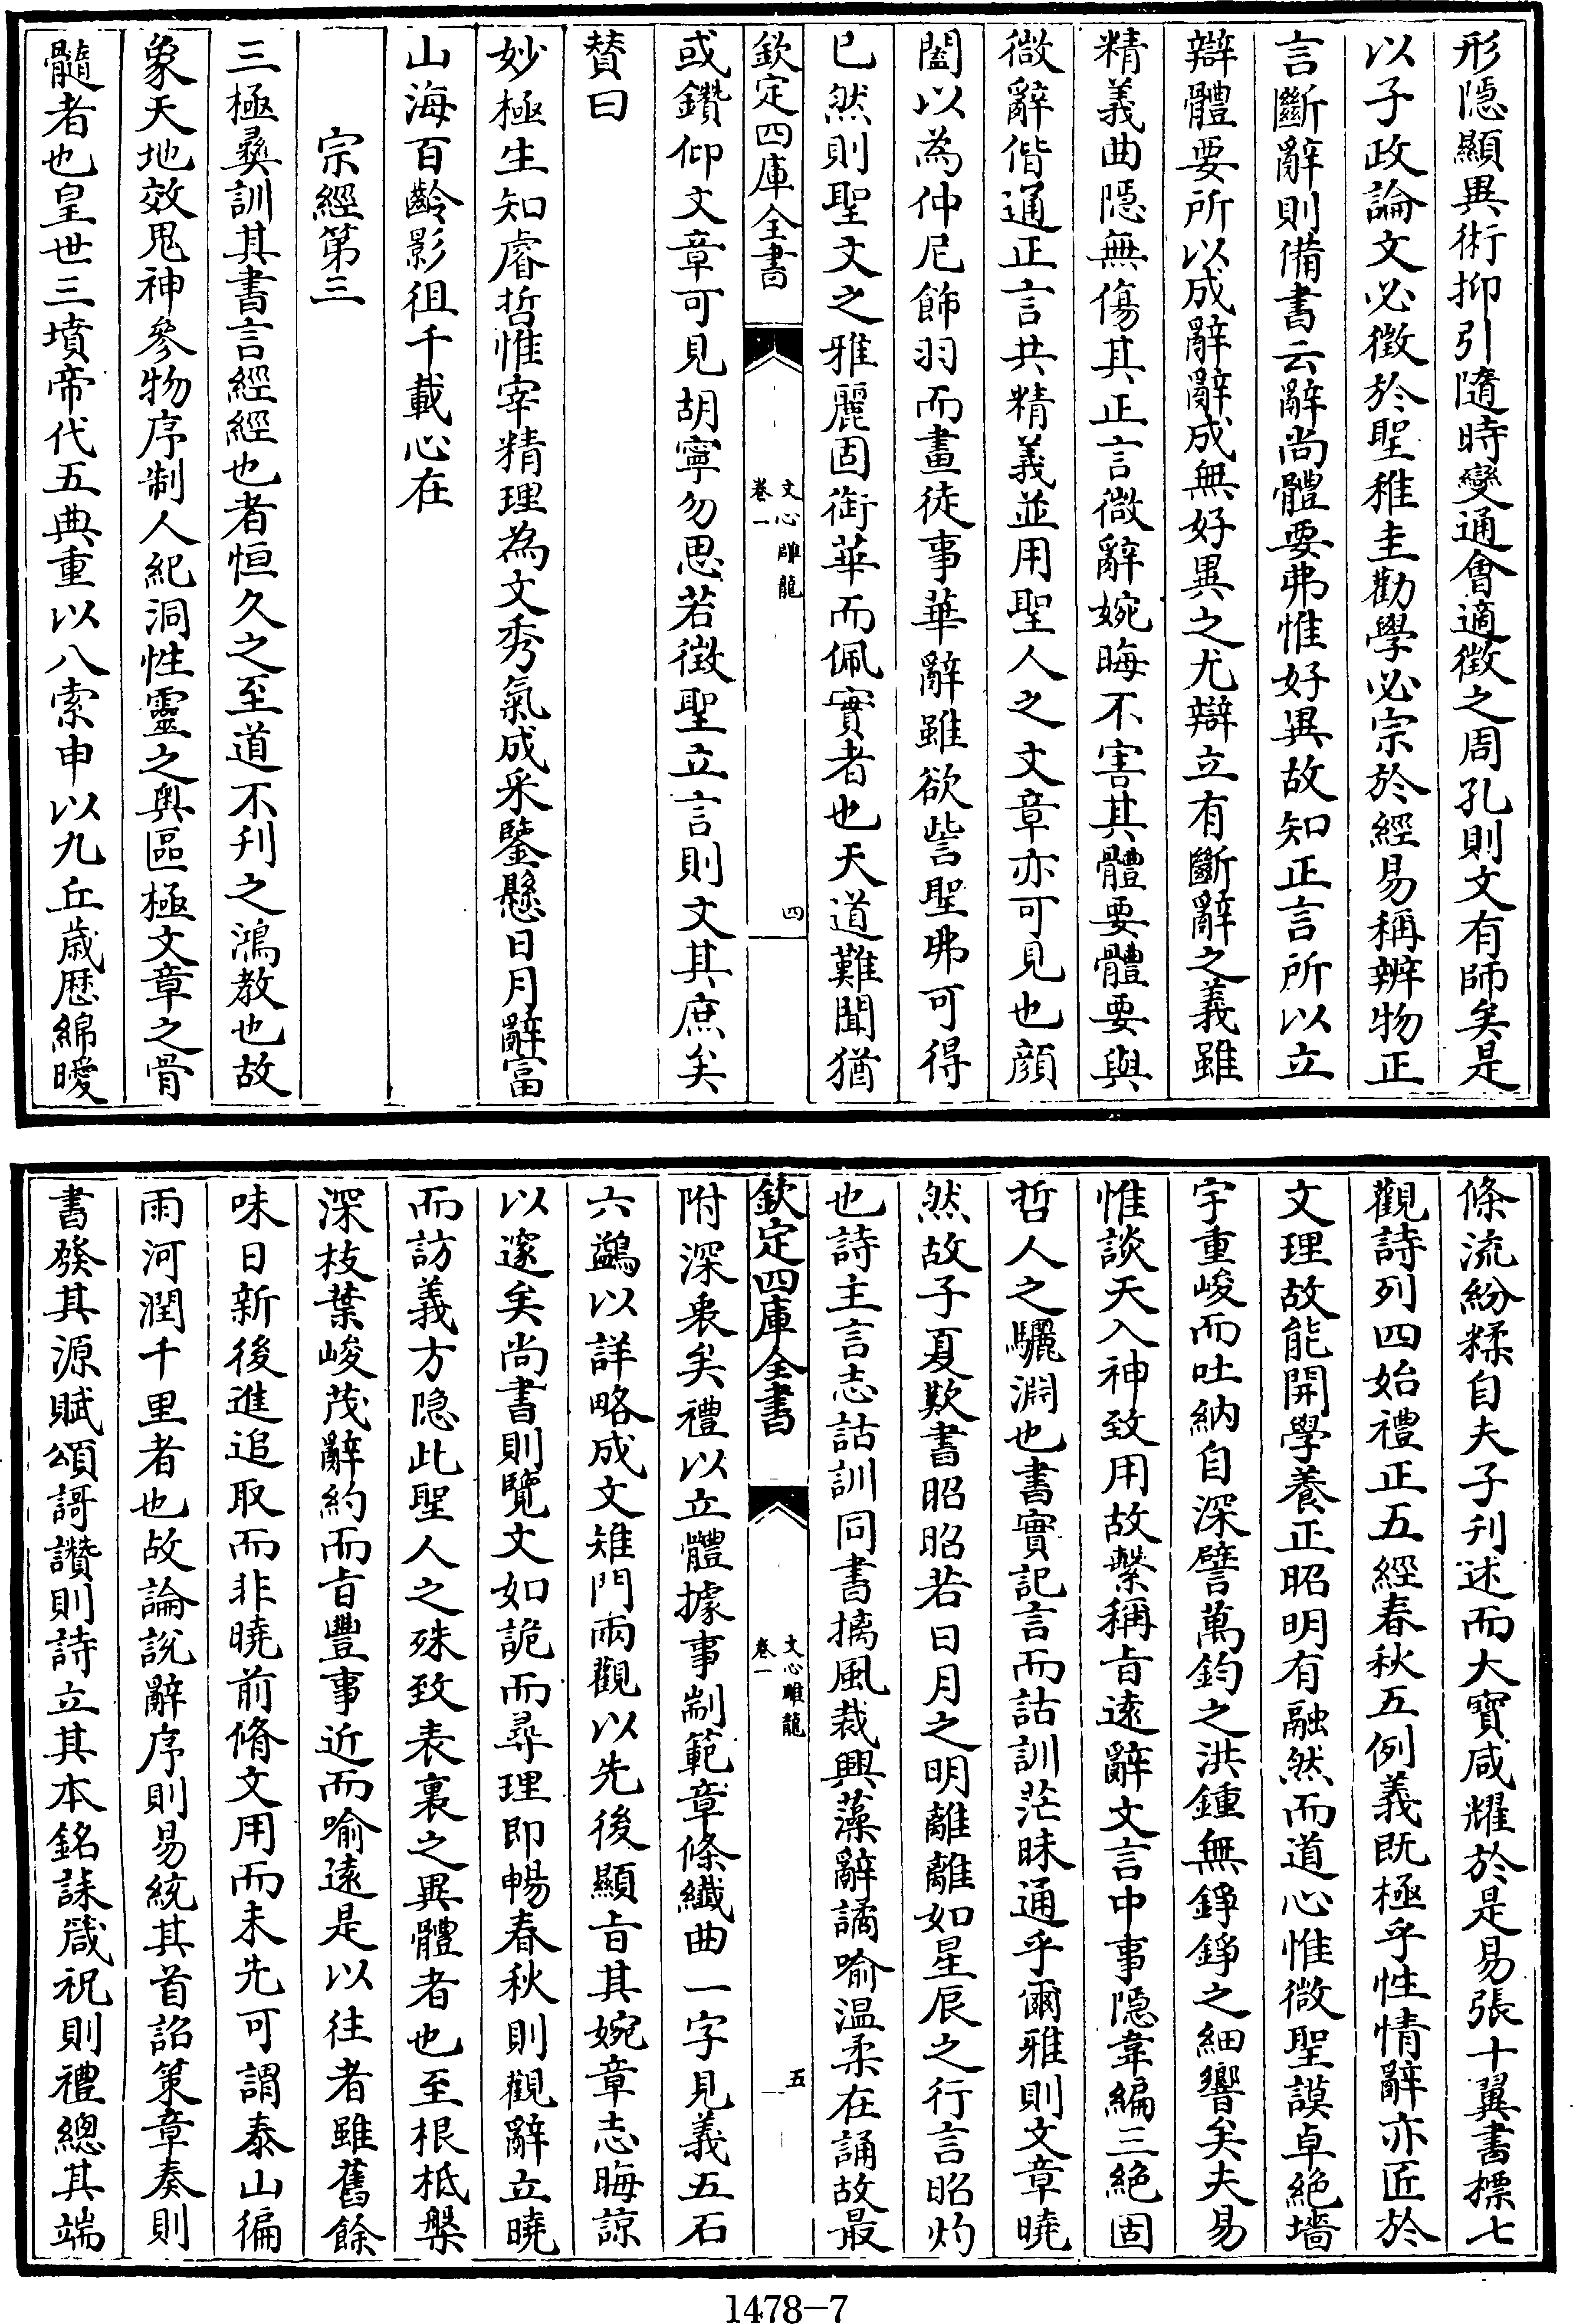 形隱顯異術抑引隨時變通會適徵之周孔則文有師矣是
以子政論文必徵於聖稚圭勸學必宗於經易稱辨物正
言斷辭則備書云辭尚體要弗惟好異故知正言所以立
辯體要所以成辭辭成無好異之尤辯立有斷辭之義雖
精義曲隱無傷其正言微辭婉晦不害其體要體要與
微辭偕通正言共精義並用聖人之文章亦可見也顔
闔以為仲尼飾羽而畫徒事華辭雖欲訾聖弗可得
已然則聖文之雅麗固銜華而佩實者也天道難聞猶
欽定四庫全書
文心雕龍
卷一
四
或鑽仰文章可見胡寧勿思若徵聖立言則文其庶矣
賛曰
妙極生知睿哲惟宰精理為文秀氣成采鑒懸日月辭富
山海百齡影徂千載心在
宗經第三
三極彞訓其書言經經也者恒久之至道不刊之鴻教也故
象天地效鬼神參物序制人紀洞性靈之奥區極文章之骨
髓者也皇世三墳帝代五典重以八索申以九丘歳歴綿曖
條流紛糅自夫子刋述而大寳咸耀於是易張十翼書標七
觀詩列四始禮正五經春秋五例義既極乎性情辭亦匠於
文理故能開學養正昭明有融然而道心惟微聖謨卓絶墻
宇重峻而吐納自深譬萬鈞之洪鍾無錚錚之細響矣夫易
惟談天入神致用故繫稱㫖逺辭文言中事隱韋編三絶固
哲人之驪淵也書實記言而詁訓茫昧通乎爾雅則文章曉
然故子夏歎書昭昭若日月之明離離如星辰之行言昭灼
也詩主言志詁訓同書摛風裁興藻辭譎喻温柔在誦故最
欽定四庫全書
文心雕龍
卷一
五
附深衷矣禮以立體據事剬範章條纎曲一字見義五石
六鷁以詳略成文雉門兩觀以先後顯㫖其婉章志晦諒
以邃矣尚書則覽文如詭而尋理即暢春秋則觀辭立曉
而訪義方隠此聖人之殊致表裏之異體者也至根柢槃
深枝葉峻茂辭約而㫖豐事近而喻逺是以往者雖舊餘
味日新後進追取而非曉前脩文用而未先可謂泰山徧
雨河潤千里者也故論說辭序則易統其首詔策章奏則
書發其源賦頌謌讚則詩立其本銘誄箴祝則禮總其端
1478-7